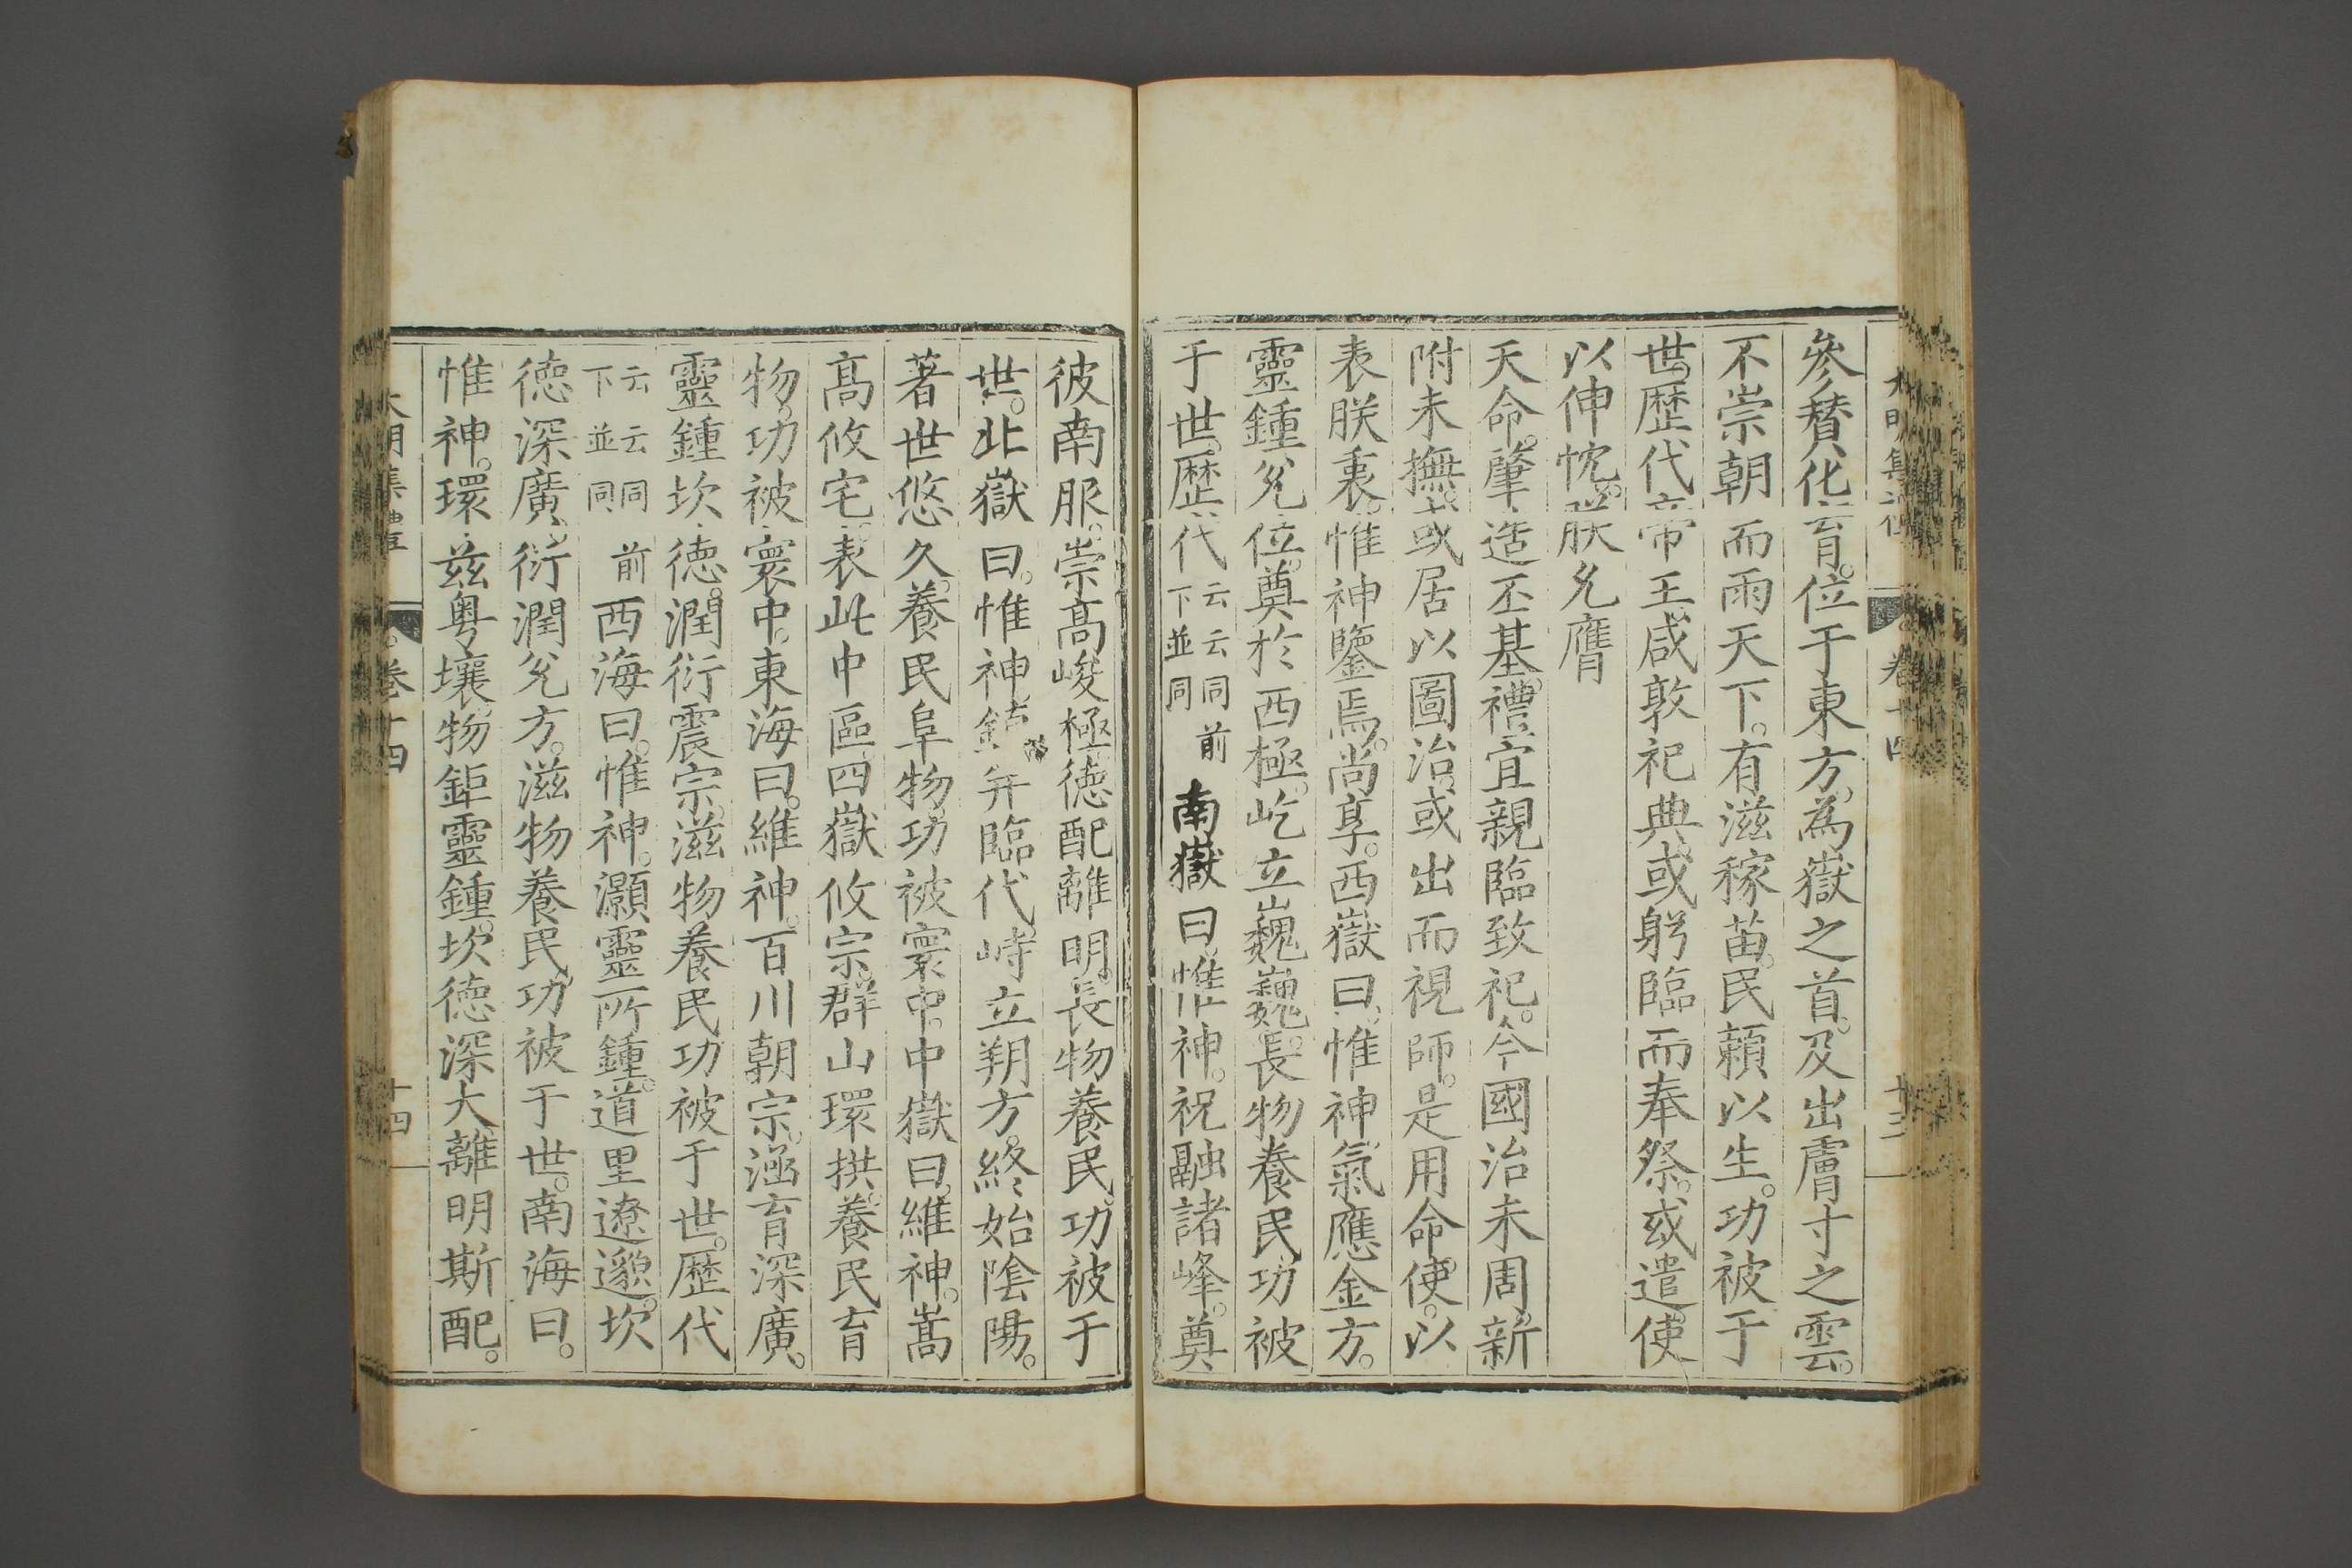 大明集禮 卷十四 十三
參賛化育。位于東方。為嶽之首。及出膚寸之雲。
不崇朝而雨天下。有滋稼苗。民頼以生。功被于
世。歴代帝王。咸敦祀典。或躬臨而奉祭。或遣使
以伸忱。朕允膺
天命。肇造丕基。禮宜親臨致祀。今國治未周。新
附未撫。或居以圖治。或出而視師。是用命使。以
表朕衷。惟神鑒焉。尚享。西嶽曰。惟神氣應金方。
靈鍾兊位。奠於西極。屹立巍巍。長物養民。功被
于世。歴代云云同前下並同南嶽曰。惟神。祝融諸峰。奠
彼南服。崇髙峻極。徳配離明。長物養民。功被于
世。北嶽曰。惟神。鎮并臨代。峙立朔方。終始隂陽。
著世悠久。養民阜物。功被寰中。中嶽曰。維神。嵩
髙攸宅。表此中區。四嶽攸宗。群山環拱。養民育
物。功被寰中。東海曰。維神。百川朝宗。涵育深廣。
靈鍾坎徳。潤衍震宗。滋物養民。功被于世。歴代
云云同前下並同西海曰。惟神。灝靈所鍾。道里遼邈。坎
徳深廣。衍潤兊方。滋物養民。功被于世。南海曰。
惟神。環兹粤壤。物鉅靈鍾。坎徳深大。離明斯配。
大明集禮 卷十四 十四